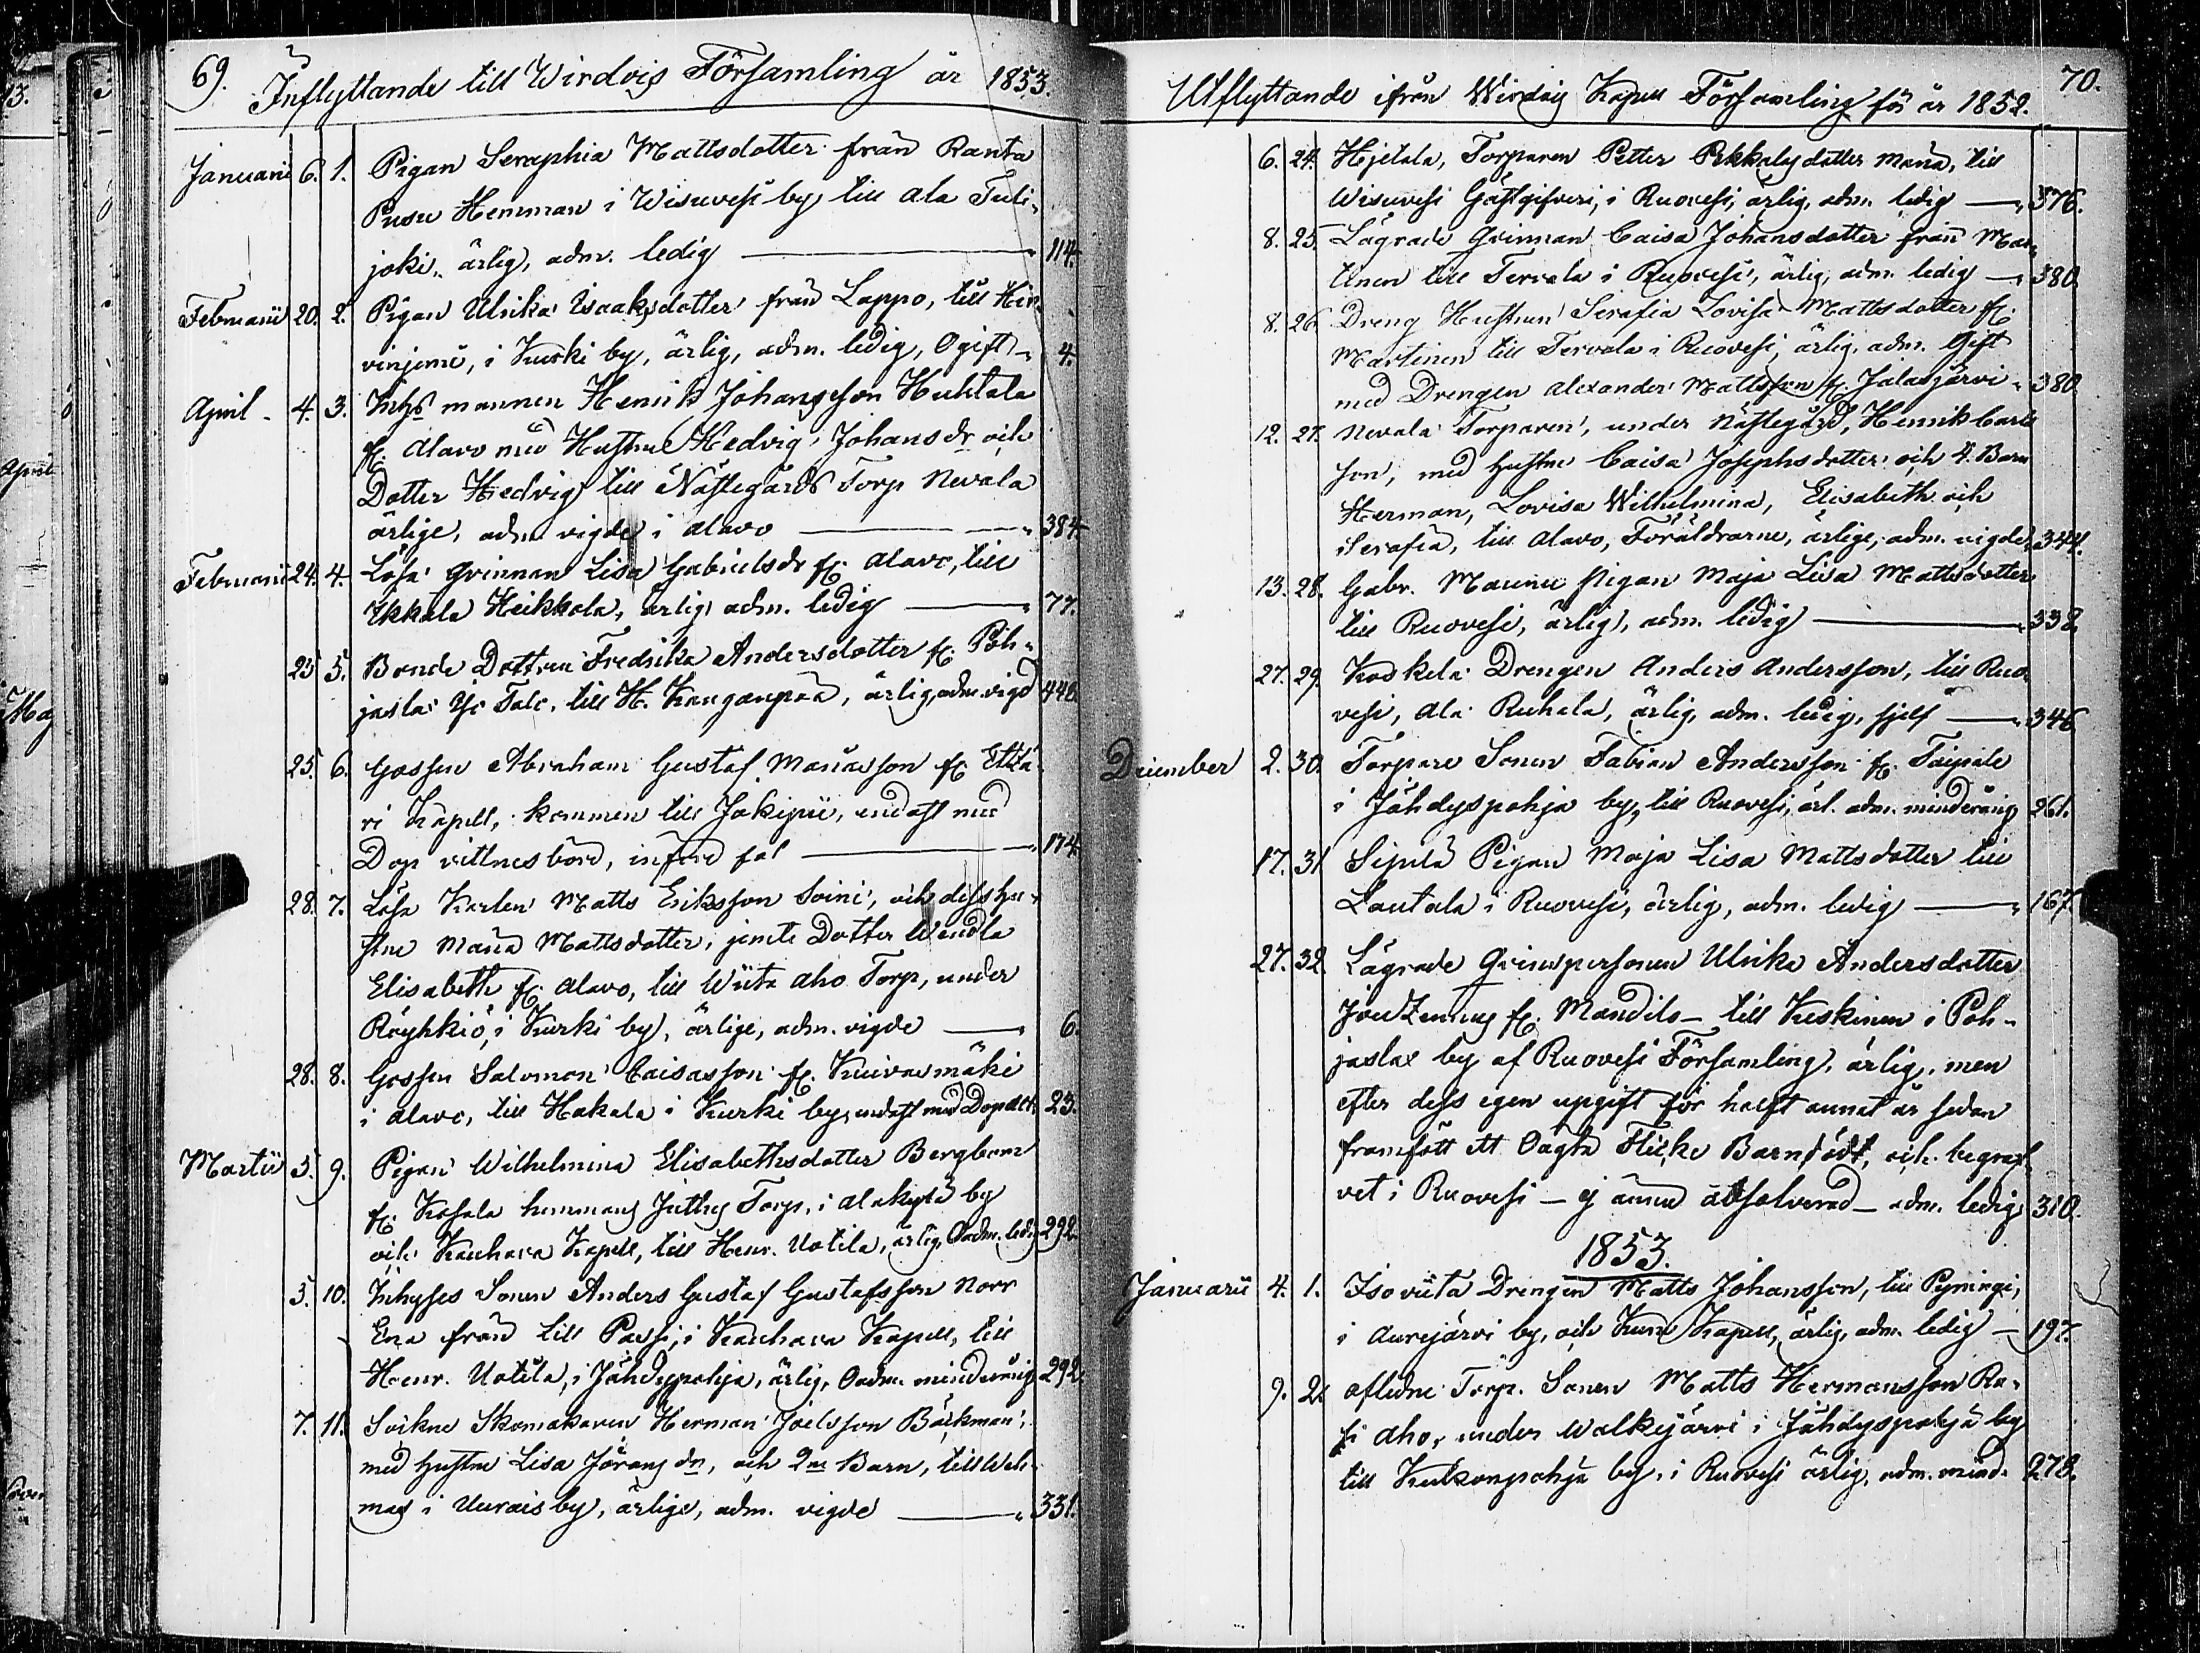 69. Inflyttande till Wirdois Församling år 1853.
Januarii 6. 1. Pigan Seraphia Mattsdotter från Ranta
Pusu Hemman i Wisuvesi by till Ala Tuli-
joki, ärlig, adm. ledig 114.
Februarii 20. 2. Pigan Ulrika Isaaksdotter från Lappo, till Hir-
vinjemi, i Kurki by, ärlig, adm. ledig, Ogift 4.
April 4. 3. Inhs mannen Henrik Johansson Huhtala
fr. Alavo med Hustru Hedvig Johansdr och
Dotter Hedvig till Nästegårds Torp Nevala
ärlige, adm. vigde i Alavo 384.
Februarii 24. 4. Lösa qvinnan Lisa Gabrielsdr fr. Alavo, till
Ikkala Heikkola, ärlig, adm. ledig 77.
25 5. Bonde Dottren Fredrika Andersdotter fr. Poh-
jaslax Yli Talo, till H. Kangaspää, ärlig, adm. vigd 448.
25. 6. Gossen Abraham Gustaf Mariasson fr. Etsä-
ri Kapell, kommen till Jokipii, endast med
Dop vittnesbörd, införd fol 174.
28. 7. Lösa Karlen Matts Eriksson Soini, och dess hu-
stru Maria Mattsdotter, jemte Dotter Wendla
Elisabeth fr. Alavo, till Wiita aho Torp, under
Röyhkiö, i Kurki by, ärlige, adm. vigde 6.
28. 8. Gossen Salomon Caisasson fr. Kuivasmäki
i Alavo, till Hakala i Kurki by, endast med Dopatt. 23.
Martii 5. 9. Pigan Wilhelmina Elisabethsdotter Bergbom
fr. Kosola hemmans Torp, i Alakylä by
och Kauhava Kapell, till Henr. Uotila, ärlig, Oadm. ledig 292.
5. 10. Inhyses Sonen Anders Gustaf Gustafsson Norr
Ena från Lill Passi, i Kauhava Kapell, till
Henr. Uotila, i Jähdyspohja, ärlig, Oadm. minderårig 292.
7. 11. Sockne Skomakaren Herman Joelsson Bäckman,
med hustru Lisa Jöransdr, och 2ne Barn, till Weh-
mas i Uurais by, ärlige, adm. vigde 331.
Utflyttande ifrån Wirdois Kapell Församling för år 1852. 70.
6. 24. Hjetala, Torparen Petter Pekkalas dotter Maria, till
Wisuvesi Gästgifveri, i Ruovesi, ärlig, adm. ledig 376.
8. 25. Lägrade Qvinnan Caisa Johansdotter från Mar-
tinen till Tervala i Ruovesi, ärlig, adm. ledig 380.
8. 26. Dreng Hustrun Serafia Lovisa Mattsdotter fr.
Martinen till Tervala i Ruovesi, ärlig, adm. Gift
med Drengen Alexander Mattsson fr. Jalasjärvi 380.
12. 27. Nevala Torparen, under Nästegård, Henrik Carls
son, med hustru Caisa Josephsdotter och 4. Barn
Herman, Lovisa Wilhelmina, Elisabeth och
Serafia, till Alavo, Föräldrarne, ärlige, adm. vigde 344.
13. 28. Gabr. Maunu Pigan Maja Lisa Mattsdotter
till Ruovesi, ärlig, adm. ledig 338.
27. 29. Koskela Drengen Anders Andersson, till Ruo-
vesi, Ala Ruhala, ärlig, adm. ledig, sjelf 346.
December 2. 30. Torpare Sonen Fabian Andersson fr. Taipale
i Jähdyspohja by, till Ruovesi, ärl. adm. minderårig 261.
17. 31. Sipilä Pigan Maja Lisa Mattsdotter till
Lautala i Ruovesi, ärlig, adm. ledig 167.
27. 32. Lägrade Qvinspersonen Ulrika Andersdotter
fr. Mandilo till Keskinen i Poh-
jaslax by af Ruovesi Församling, ärlig, men
efter dess egen upgift för halft annat år sedan
framfött ett Oägta Flicke Barn, födt, och begraf-
vet i Ruovesi – ej ännu absolverad – adm. ledig 310.
1853.
Januarii 4. 1. Isoviita Drengen Matts Johansson, till Pyningi,
i Aurejärvi by, och Kuru Kapell, ärlig, adm. ledig 197.
9. 2. aflidne Torp. Sonen Matts Hermansson Ra-
si aho, under Walkejärvi i Jähdyspohja by
till Kukonpohja by, i Ruovesi ärlig, adm. mind. 278.